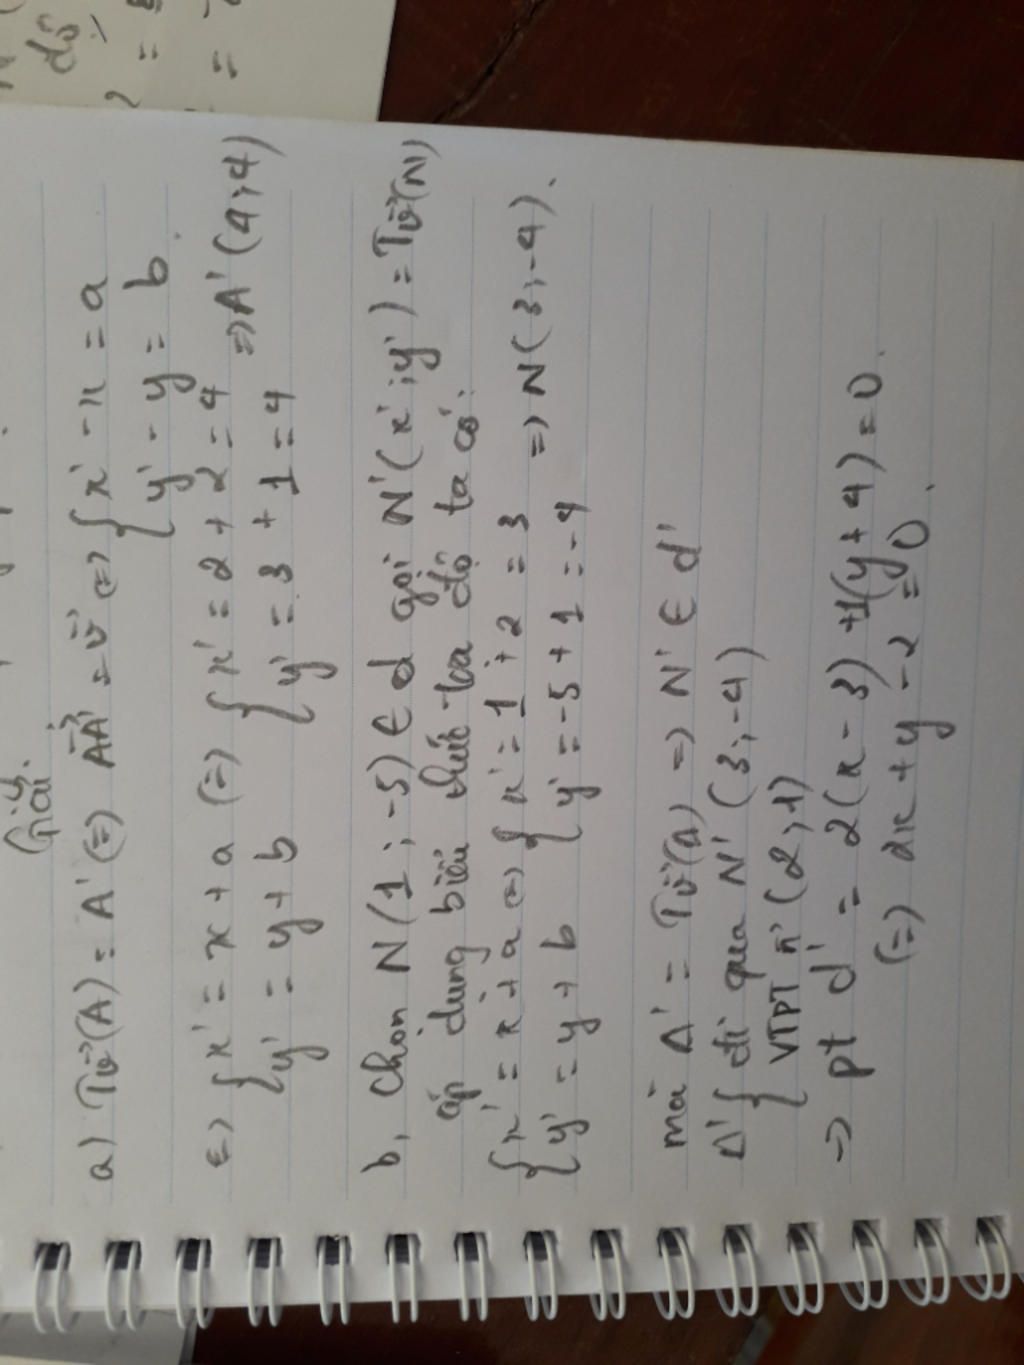 Giải.
a) Tv⃗(A) = A' (=) AA'⃗ = v⃗ (=) { x' - x = a
{ y' - y = b.
=) { x' = x + a (=) { x' = 2 + 2 = 4
{ y' = y + b { y' = 3 + 1 = 4 => A' (4; 4)
b, Chọn N(1; -5) ∈ d gọi N'(x'; y') = Tv⃗(N)
áp dụng biểu thức toạ độ ta có:
{ x' = x + a (=) { x' = 1 + 2 = 3
{ y' = y + b { y' = -5 + 1 = -4 => N(3; -4).
mà Δ' = Tv⃗(Δ) => N' ∈ d'
Δ' { đi qua N' (3; -4)
{ VTPT n⃗ (2; 1)
=> pt d' = 2(x - 3) + 1(y + 4) = 0.
(=) 2x + y - 2 = 0.
độ